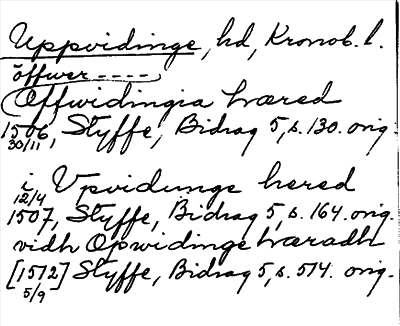 Uppvidinge, hd, Kronob. l.
öffwer ----
Offwidingia hæred
1506, Styffe, Bidrag 5, s. 130. orig.
30/11
i Vpvidunge hered
12/4
1507, Styffe, Bidrag 5, s. 164. orig.
vidh Opwidinge hæradh
[1512] Styffe, Bidrag 5, s. 574. orig.
5/9